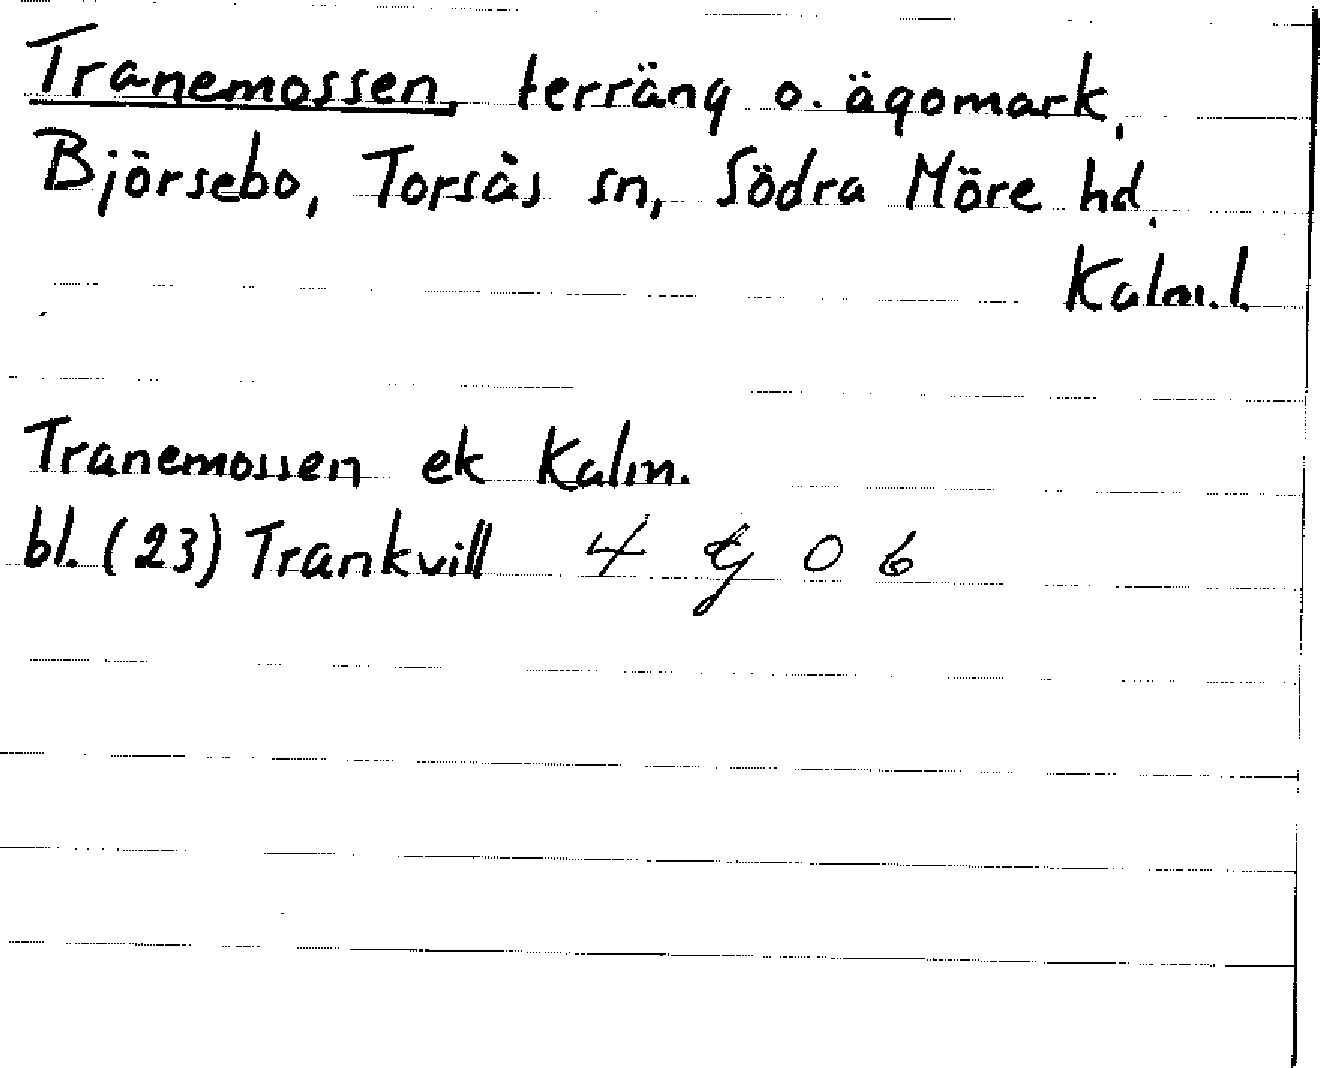 Tranemossen, terräng o. ägomark,
Björsebo, Torsås sn, Södra Möre hd.
Kalm.l.
Tranemossen ek Kalm.
bl. (23) Trankvill 4 g 0 6